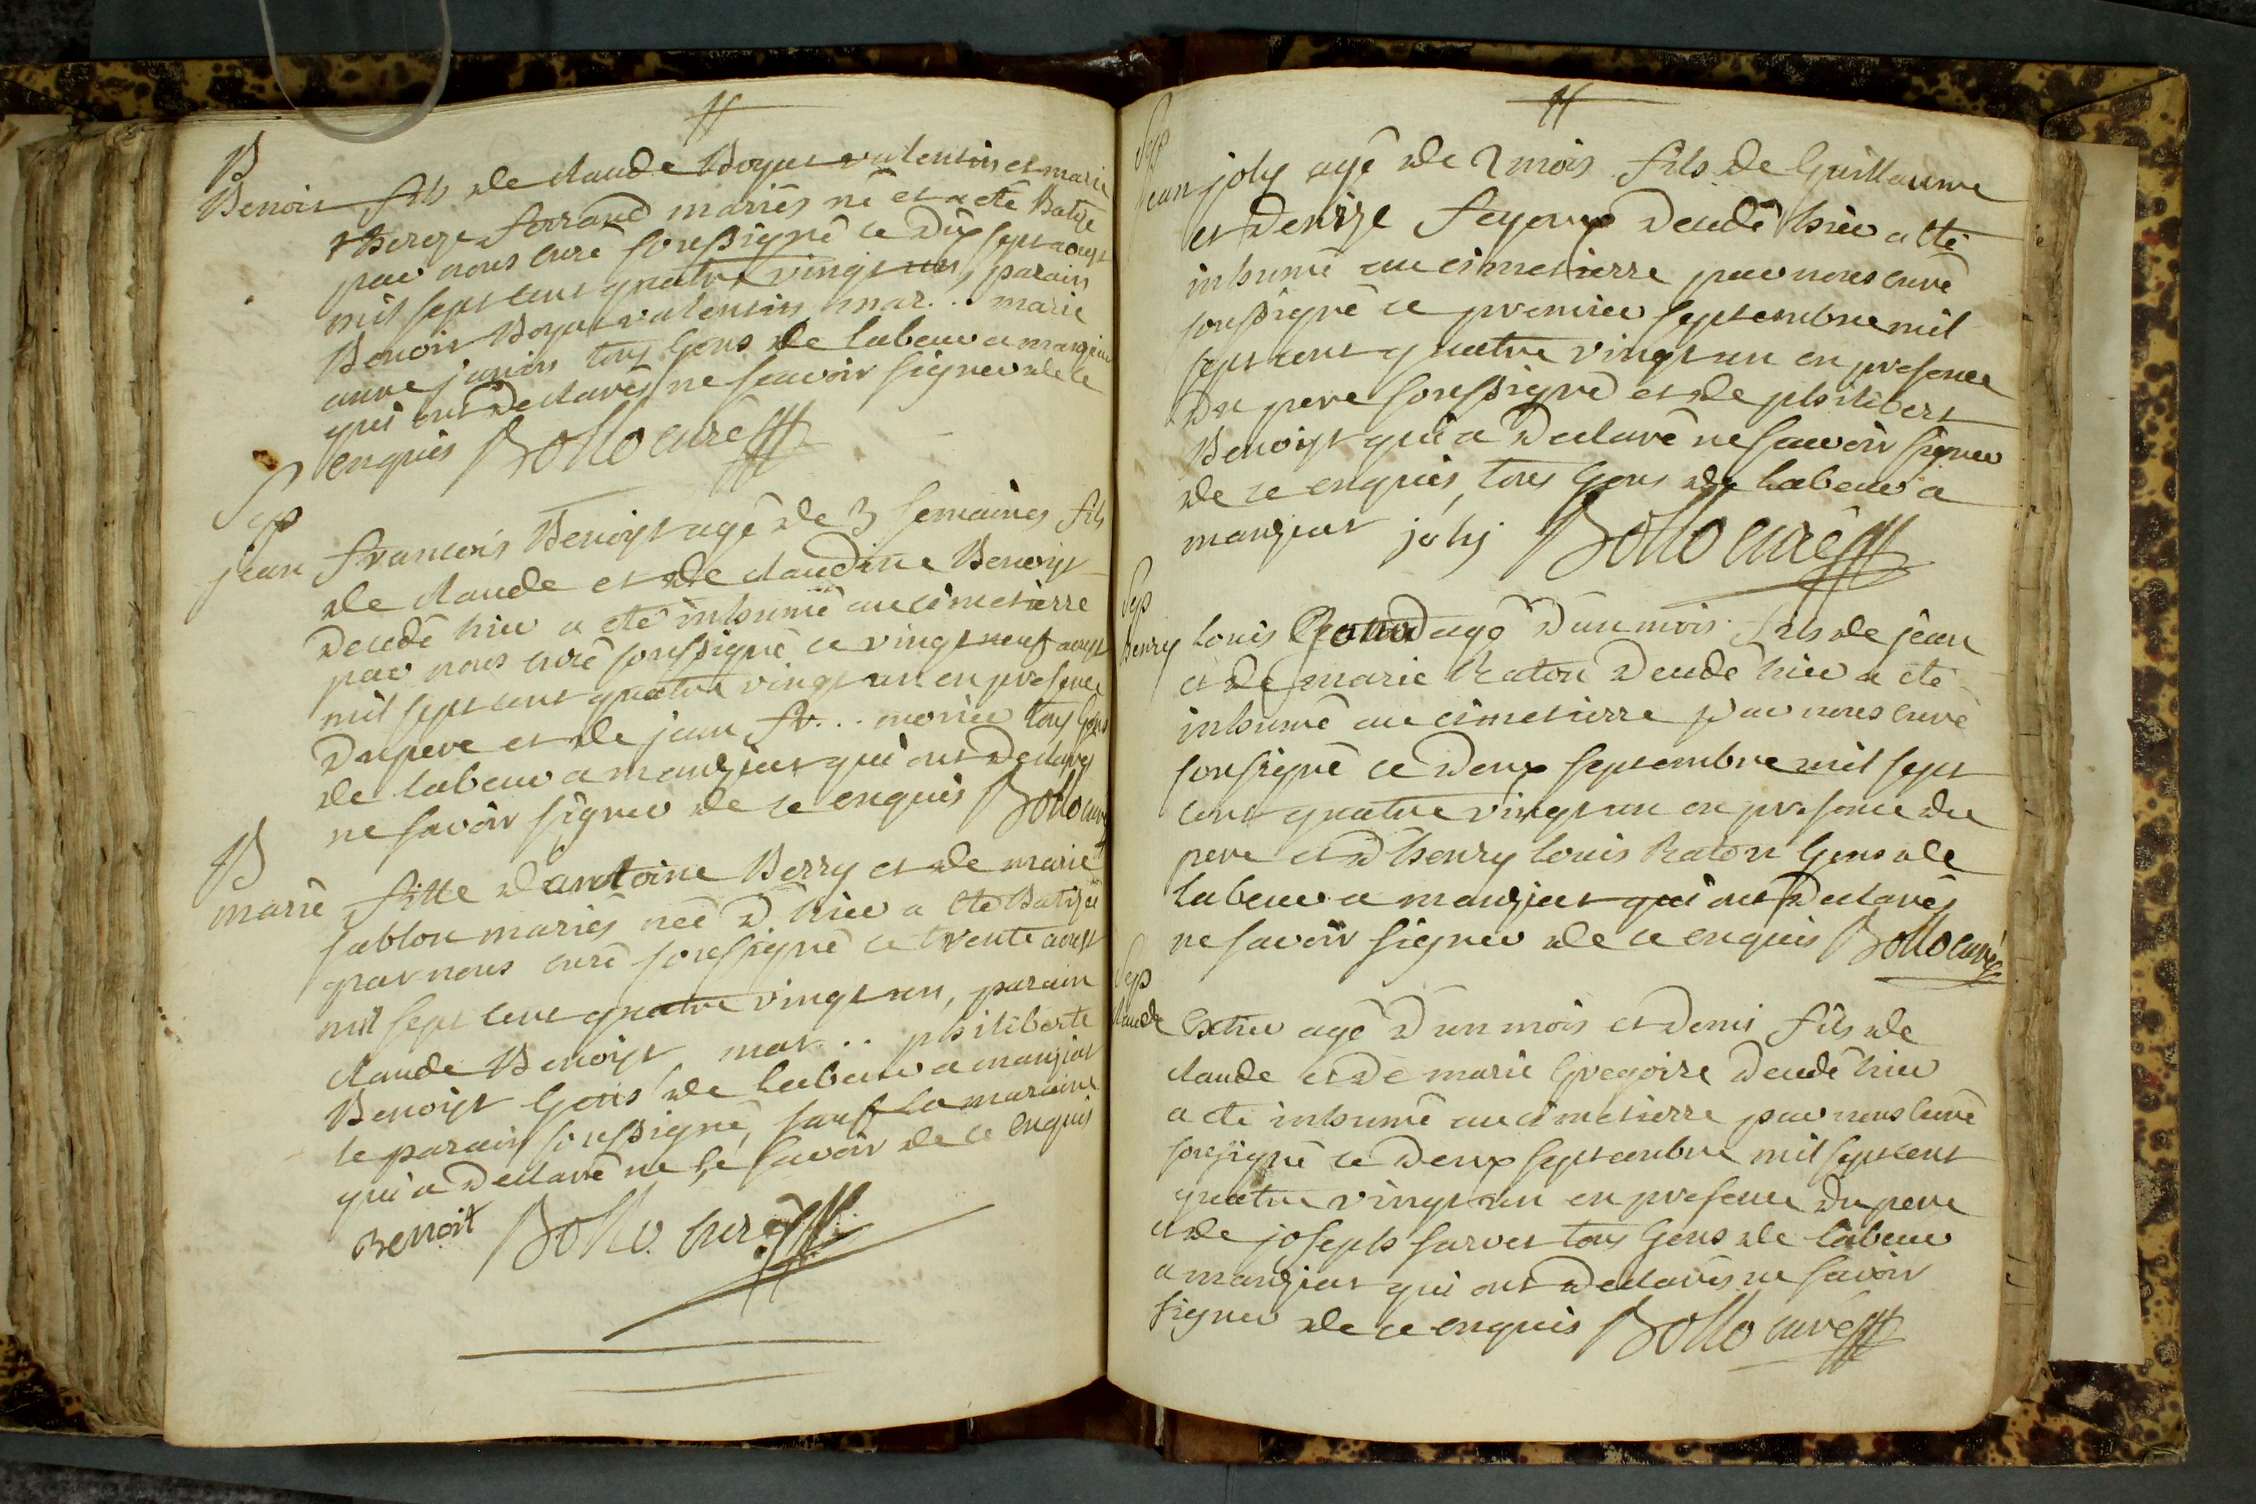 B
Benoit fils de claude Boyat valentin et marie
thereze ferrand mariés né et a eté Batizé
par nous curé soussigné ce dix sept aoust
mil sept cent quatre vingt un, parain
Benoit Boyat valentin, mar... marie
anne janin tous Gens de labeur a manziat
qui ont declarés ne scavoir signer de ce
enquis Bollo curé
Sep
jean francois Benoist agé de 3 semaines fils
de claude et de claudine Benoist
decedé hier a eté inhumé au cimetierre
par nous curé soussigné ce vingt neuf aoust
mil sept cent quatre vingt un en presence
du pere et de jean fr... monier tous Gens
de labeur a manziat qui ont declarés
ne savoir signer de ce enquis Bollo curé
B
marie fille dantoine Berry et de marie
sablon mariés née d'hier a eté batizée
par nous curé soussigné ce trente aoust
mil sept cent quatre vingt un, parain
claude Benoist, mar... philiberte
Benoist Gens de labeur a manziat
le parain soussigné, sauf la maraine
qui a declaré ne le savoir de ce enquis
Benoit Bollo curé
Sep
jean joly agé de 2 mois fils de Guillaume
et denize feyoux decedé hier a eté
inhumé au cimetierre par nous curé
soussigné ce premier septembre mil
sept cent quatre vingt un en presence
du pere soussigné et de philibert
Benoist qui a declaré ne savoir signer
de ce enquis, tous Gens de labeur a
manziat joly Bollo curé
Sep
henry louis agé d'un mois fils de jean
et de marie Raton decedé hier a eté
inhumé au cimetierre par nous curé
sousigné ce deux septembre mil sept
cent quatre vingt un en presence du
pere et d'henry louis Raton Gens de
labeur a manziat qui ont declarés
ne savoir signer de ce enquis Bollo curé
Sep
claude agé d'un mois et demi fils de
claude et de marie Gregoire decedé hier
a eté inhumé au cimetierre par nous curé
sousigné ce deux septembre mil sept cent
quatre vingt un en presence du pere
et de joseph tous Gens de labeur
a manziat qui ont declarés ne savoir
signer de ce enquis Bollo curé